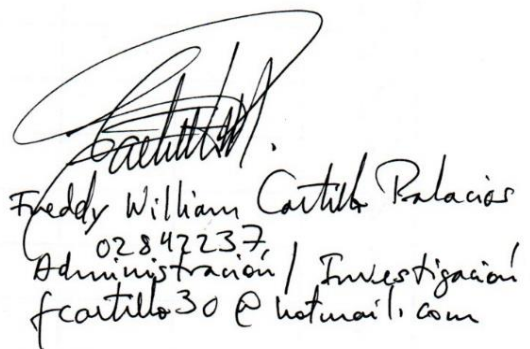 Freddy William Castillo Palacios
02842237
Administración / Investigación
fcastillo30@hotmail.com